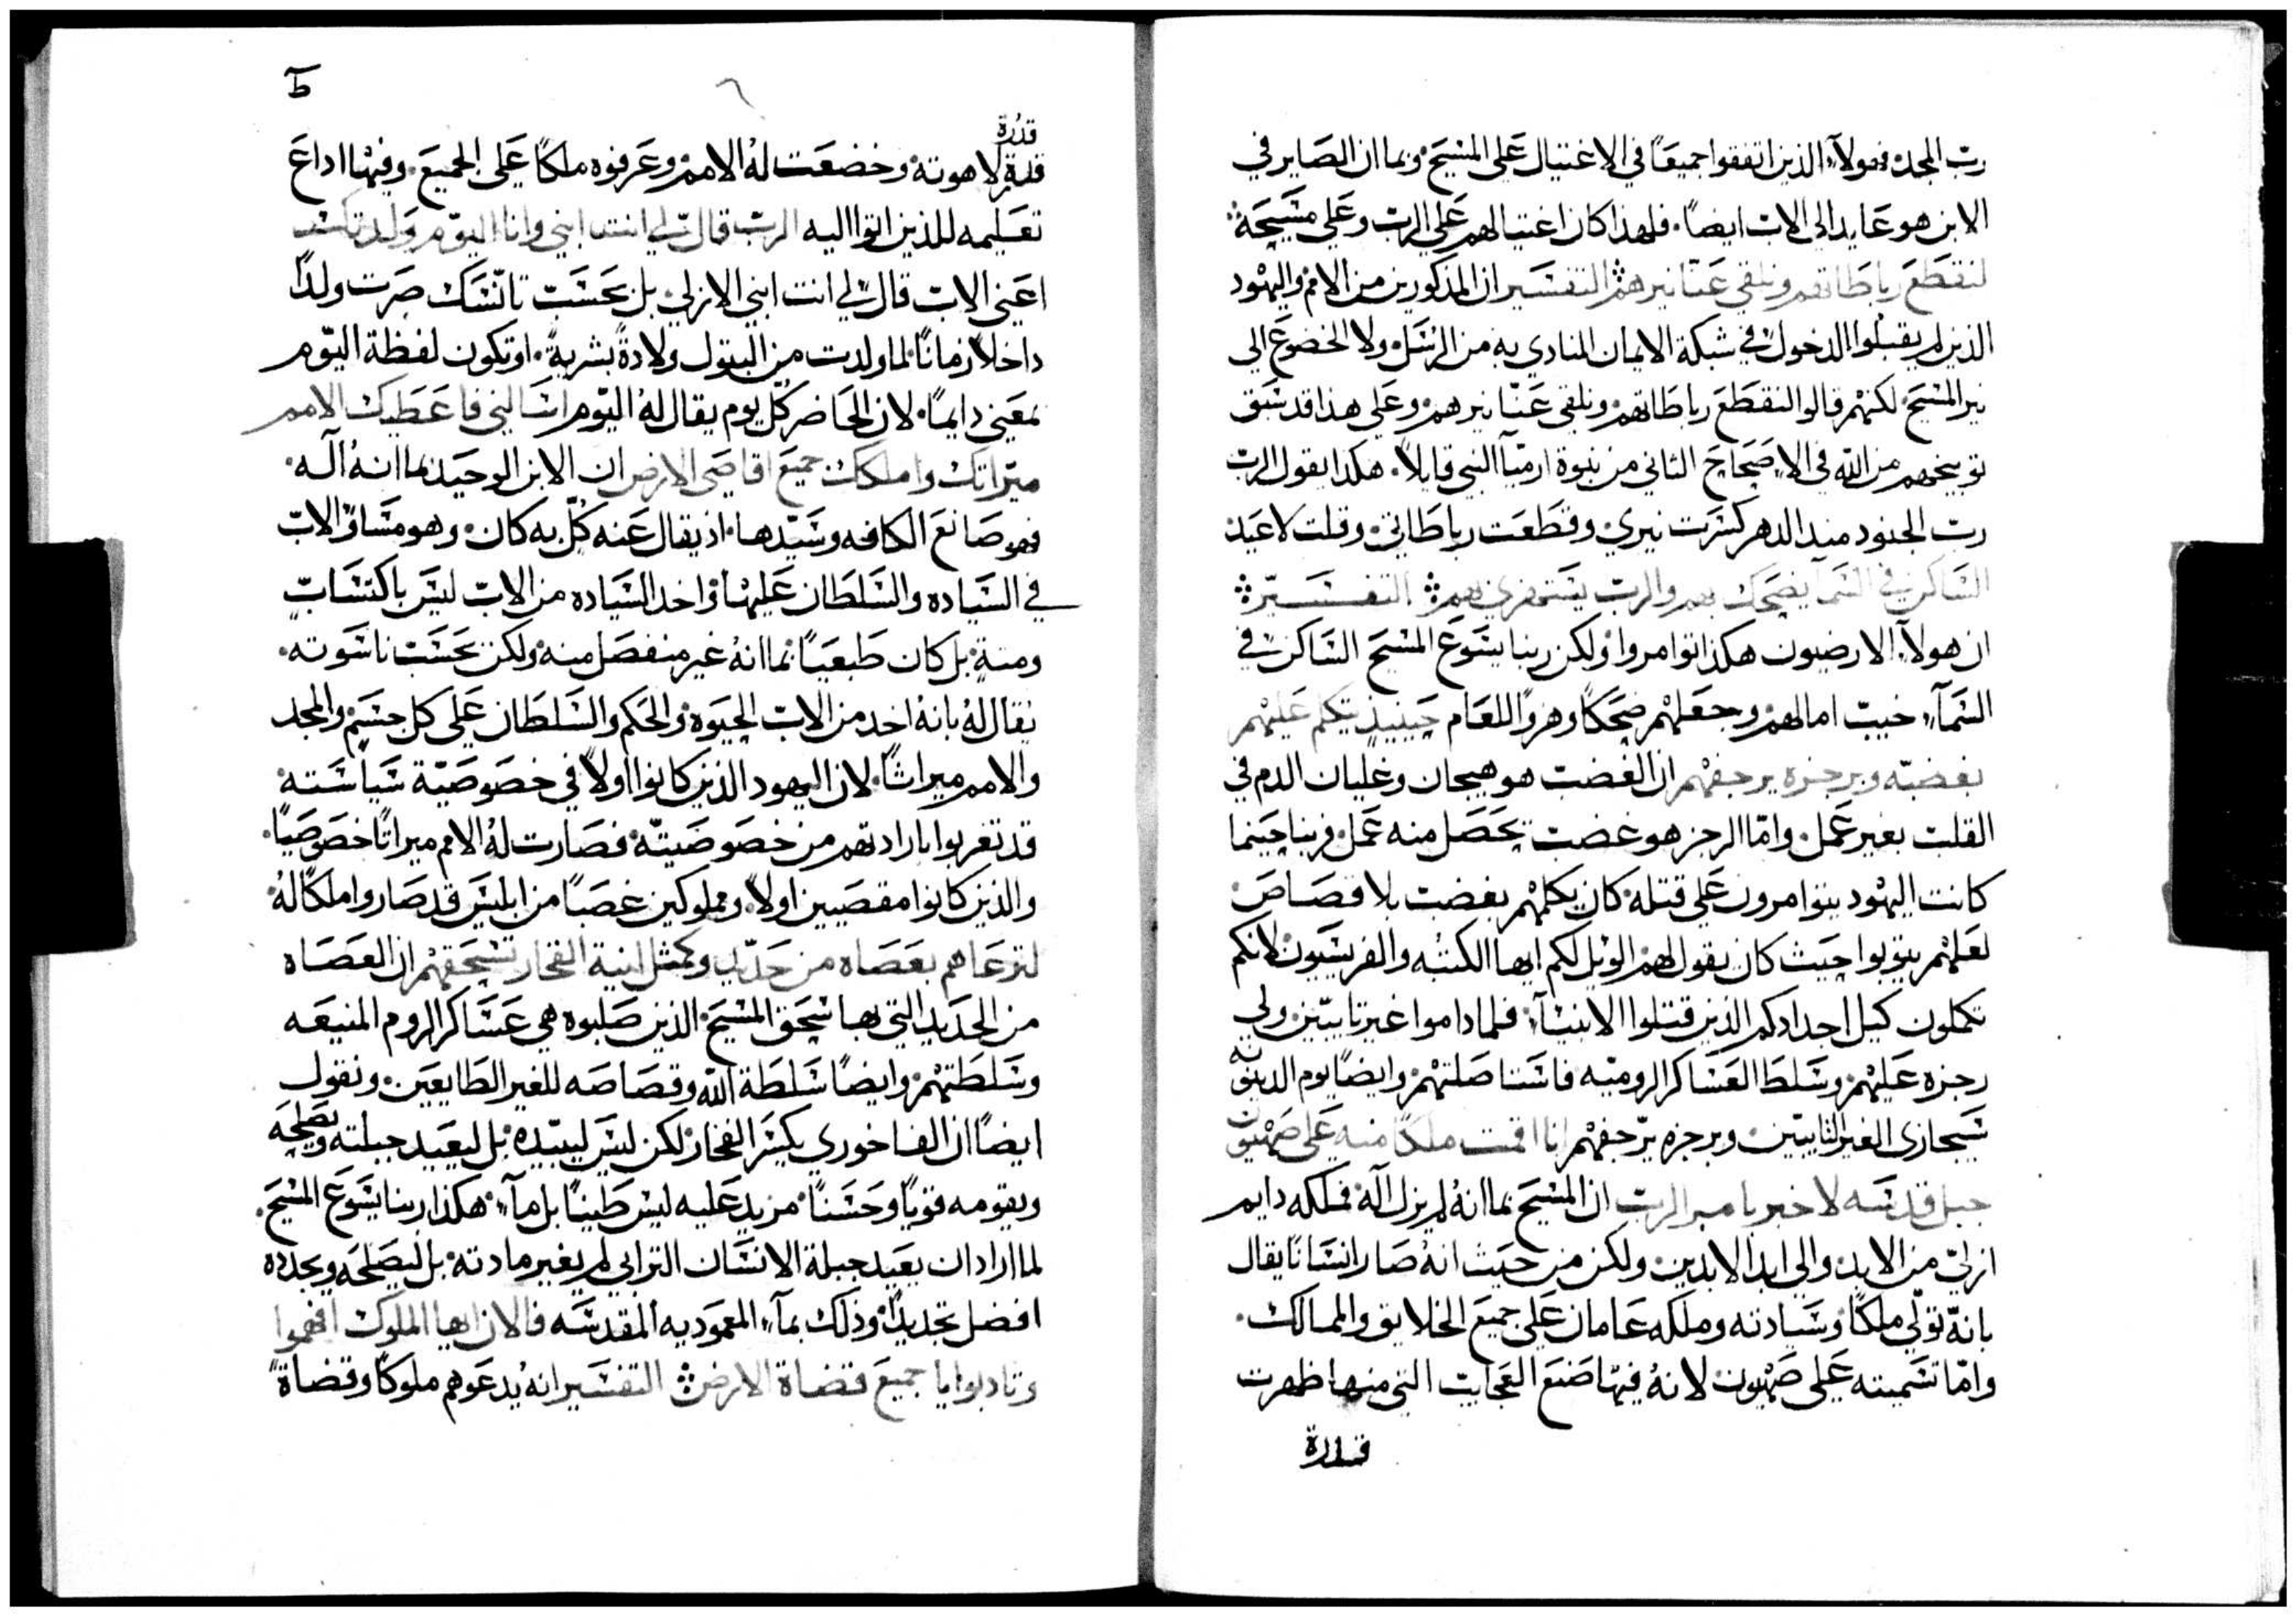 رب المجد. فهولآء الذين اتفقوا جميعاً في الاغتيال على المسيح. وبما ان الصاير في
الابن هو عايد الى الاب ايضاً. فلهذا كان اغتيالهم على الرب وعلى مسيحه
لنقطع رباطاتهم ونلقي عنا نيرهم التفسير ان المذكورين من الامم واليهود
الذين لم يقبلوا الدخول في شبكة الايمان المنادي به من الرسل ولا الخضوع الى
نير المسيح. لكنهم قالوا لنقطع رباطاتهم ونلقي عنّا نيرهم. وعلى هذا قد سبق
توبيخهم من الله في الاصحاح الثاني من نبوة ارميآ النبي قايلاً. هكدا يقول الرب
رب الجنود منذ الدهر كسرت نيري وقطعت رباطاتي. وقلت لا عبد
الساكن في السمآ يضحك بهم والرب يستهزي بهم التفسير
ان هولآء الارضيون هكذا توامروا ولكن ربنا يسوع المسيح الساكن في
السمآء خيب امالهم وجعلهم ضحكاً وهزواً للعام حينيذ يتكلم عليهم
بغضبه وبرجزه يرجفهم ان الغضب هو هيجان وغليان الدم في
القلب بغير عمل. وامّا الرجز هو غضب يحصل منه عمل. فربنا حينما
كانت اليهود يتوامرون على قتله كان يكلمهم بغضب بلا قصاص
لعلهم يتوبوا حيث كان يقول لهم الويل لكم ايها الكتبه والفريسيون لانكم
تكملون كيل اجدادكم الذين قتلوا الانبيآء. فلما داموا غير تايبين ولي
رجزه عليهم وسلط العساكر الروميه فاستاصلتهم وايضاً يوم الدينونه
سيجازى الغير التايبين وبرجزه يرجفهم انا اقمت ملكاً منه على صهيون
جبل قدسه لاخبر بامر الرب ان المسيح بما انهُ لم يزل آله. فملكه دايم
ازلي من الابد والى ابد الابدين ولكن من حيث انهُ صار انساناً يقال
بانهّ تولّى ملكاً وسيادته وملكه عامان على جميع الخلايق والممالك.
وامّا تسميته على صهيون لانهُ فيها صنع العجايب التي منها ظهرت
قدرة
ط
قدرة
قدرة لاهوته وخضعت لهُ الامم وعرفوه ملكاً على الجميع. وفيها اداع
تعليمه للذين اتوا اليه الرب قال لي انت ابني وانا اليوم ولدتك
اعني الاب قال لي انت ابني الازلي بل بحسب تانّسك صرت ولداً
داخلاً زماناً لما ولدت من البتول ولادةً بشريةً. او تكون لفظة اليوم
بمعنى دايماً. لان الحاضر كل يوم يقال لهُ اليوم اسالني فاعطيك الامم
ميراتك واملكك جميع اقاصي الارض ان الابن الوحيد بما انهُ آله.
فهو صانع الكافه وسيّدها. اذ يقال عنه كلّ به كان. وهو مساوٍ الاب
في السياده والسلطان عليها واخد السياده من الاب ليس باكتسابٍ
ومنةٍ. بل كان طبعياً. بما انهُ غير منفصل منه ولكن بحسب ناسوته.
يقال لهُ بانهُ اخد من الاب الحيوه والحكم والسلطان على كل جسم والمجد
والامم ميراثاً. لان اليهود الذين كانوا اولاً في خصوصيّة سياسته
قد تغربوا بارادتهم من خصوصيتّه. فصارت لهُ الامم ميراثاً خصوصياً.
والذين كانوا مقصيين اولاً ومملوكين غصباً من ابليس قد صاروا ملكاً لهُ.
لترعاهم بعصاه من حديد وكمثل انية الفخار تسحقهم ان العصاه
من الحديد التي بها سحق المسيح الذين صلبوه هي عساكر الروم المنيعه
وسلطتهم. وايضاً سلطة الله وقصاصه للغير الطايعين. ونقول
ايضاً ان الفاخوري يكسر الفخار لكن ليس ليبيّده. بل ليعيد جبلته ويصلحه
ويقومه قوياً وحسناً. مزيد عليه ليس طيناً بل مآء. هكذا ربنا يسوع المسيح.
لما اراد ان يعيد جبلة الانسان الترابي لم يغير مادته. بل ليصلحه ويجدده
افضل تجديداً وذلك بمآء المعموديه المقدسه فالان ايها الملوك افهموا
وتادبوا يا جميع قضاة الارض التفسير انه يدعوهم ملوكاً وقضاةً